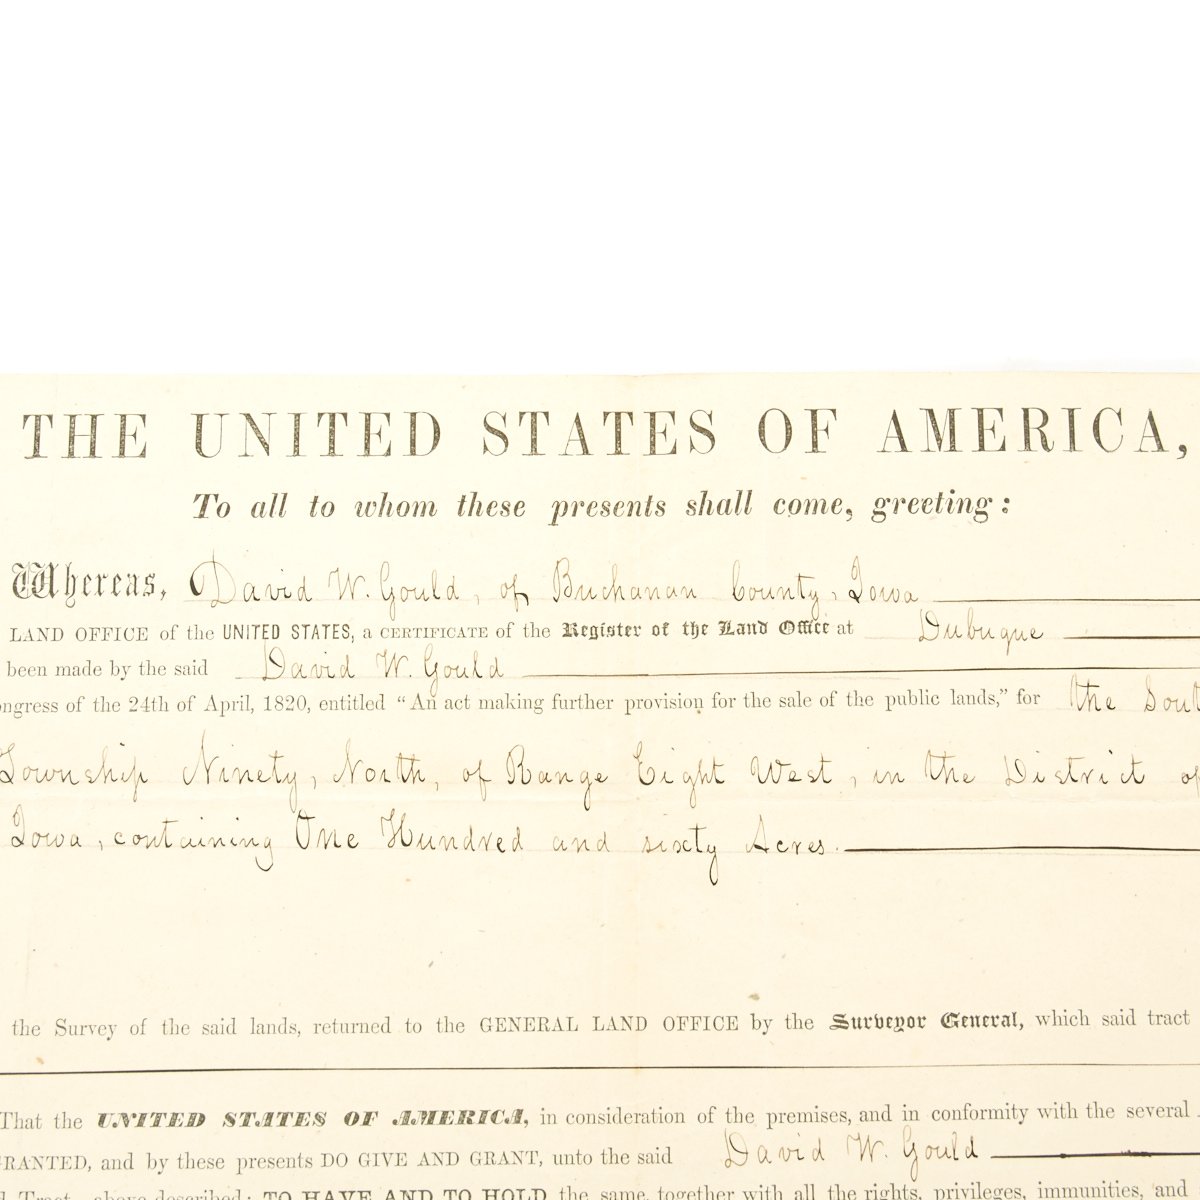 THE UNITED STATES OF AMERICA,
To all to whom these presents shall come, greeting:
Whereas, David W. Gould, of Buchanan County, Iowa
LAND OFFICE of the UNITED STATES, a CERTIFICATE of the Register of the Land Office at Dubuque
been made by the said David W. Gould
ongress of the 24th of April, 1820, entitled "An act making further provision for the sale of the public lands," for the Sout
Township Ninety, North, of Range Eight West, in the District of
Iowa, containing One Hundred and sixty Acres.
the Survey of the said lands, returned to the GENERAL LAND OFFICE by the Surveyor General, which said tract
That the UNITED STATES OF AMERICA, in consideration of the premises, and in conformity with the several
RANTED, and by these presents DO GIVE AND GRANT, unto the said David W. Gould
Tract above described: TO HAVE AND TO HOLD the same, together with all the rights, privileges, immunities, and